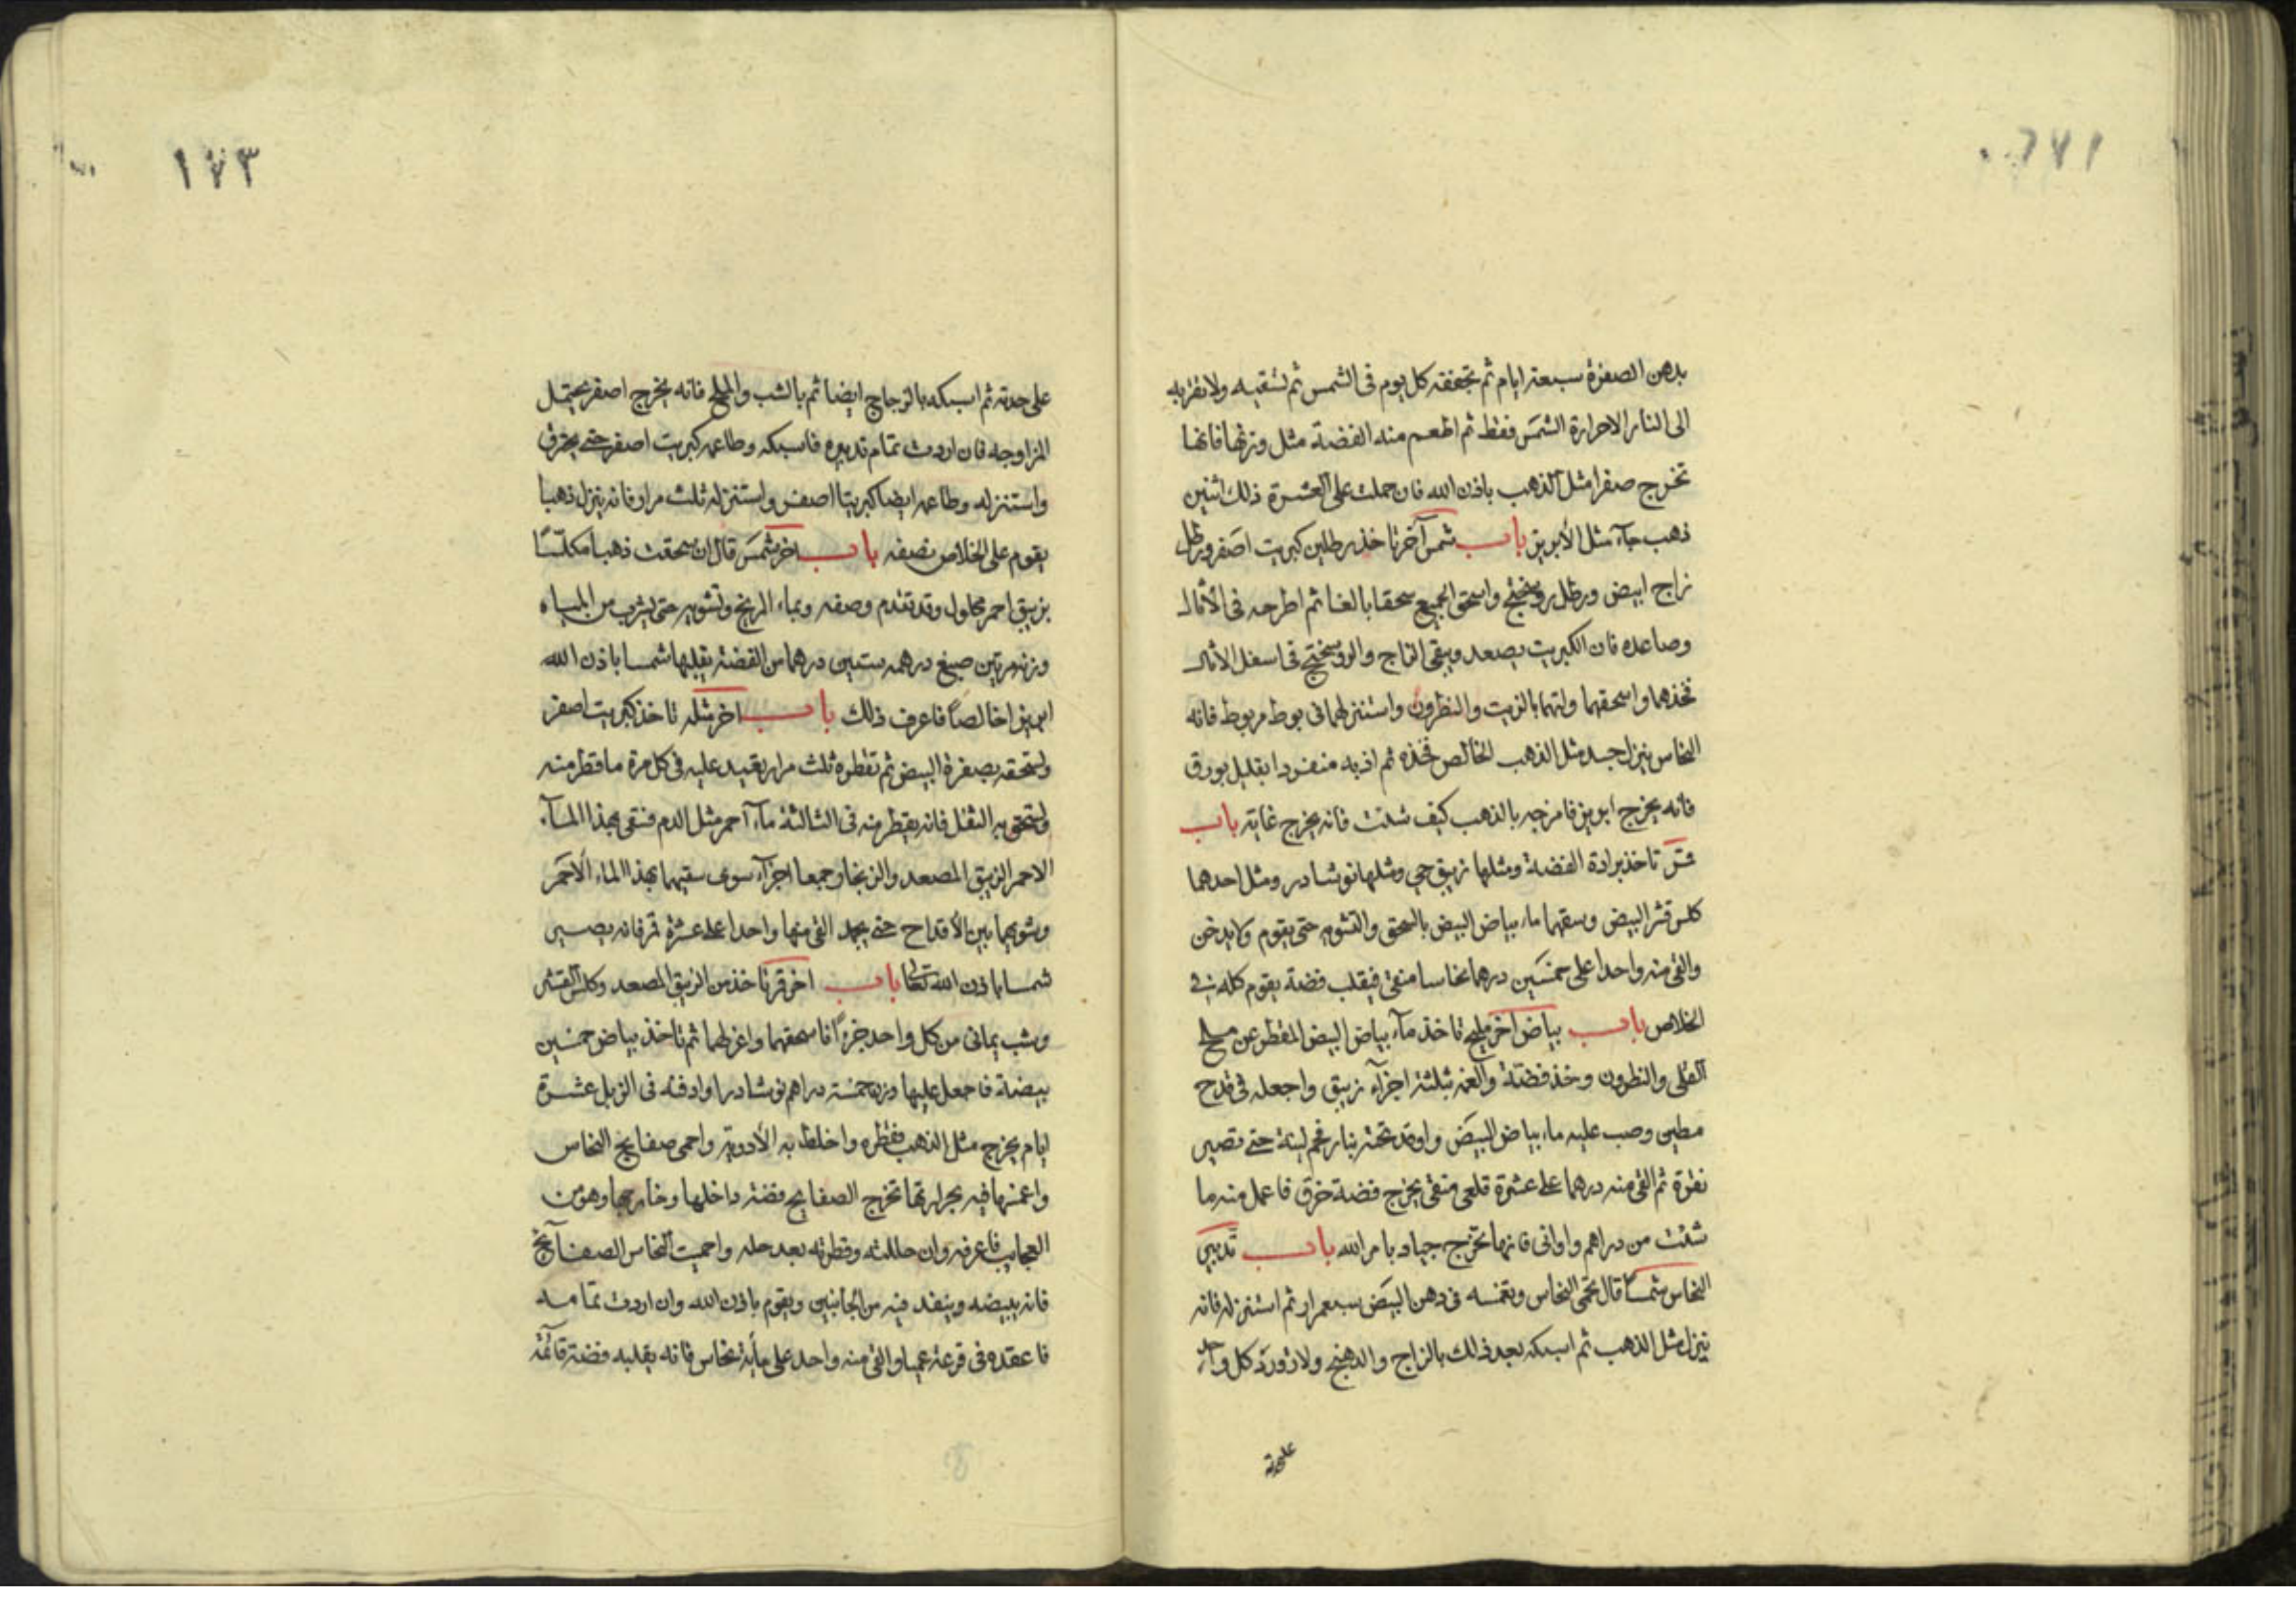 ١٧٢
بدهن الصفرة سبعة ايام ثم تجففه كل يوم فى الشمس ثم تسقيه ولا تقربه
الى النار الاحرارة الشمس فقط ثم اطعم منه الفضة مثل وزنها فانها
تخرج صفرا مثل الذهب باذن الله فان حملت على العشرة ذلك اثنين
ذهب جآء مثل الأبريز باب شمس آخر تاخذ رطلين كبريت اصفر ورطل
زاج ابيض ورطل روسختج واسحق الجميع سحقا بالغا ثم اطرحه فى الأثال
وصاعده فان الكبريت يصعد ويبقى الزاج والروسختج فى اسفل الاثال
فخذهما واسحقهما ولتهما بالزيت والنطرون واستنزلهما فى بوط مربوط فانه
النحاس ينزل جسد مثل الذهب الخالص فخذه ثم اذبه منفردا بقليل بورق
فانه يخرج ابريز فامزجه بالذهب كيف شئت فانه يخرج غاية باب
قمر تاخذ برادة الفضة ومثلها زيبق حي ومثلها نوشادر ومثل احدهما
كلس قشر البيض وسقهما ماء بياض البيض بالسحق والتشويه حتى يقوم ولا يدخن
والقى منه واحدا على خمسين درهما نحاسا منقى فيقلب فضة يقوم كله فى
الخلاص باب بياض آخر مليح تاخذ مآء بياض البيض المقطر عن ملح
القلى والنطرون وخذ فضة والغمه بثلثة اجزآء زيبق واجعله فى قدح
مطين وصب عليه ماء بياض البيض واوقد تحته بنار فحم لينة حتى تصير
نقرة ثم القى منه درهما على عشرة قلعى منقى يخرج فضة خرق فاعمل منه ما
شئت من دراهم واوانى فانها تخرج جياد بامر الله باب تدبير
النحاس شمسا قال تحمى النحاس وتغمسه فى دهن البيض سبع مرار ثم استنزله فانه
ينزل مثل الذهب ثم اسبكه بعد ذلك بالزاج والدهنج ولازورد كل واحد
على حدته
١٧٣
على حدته ثم اسبكه بالزجاج ايضا ثم بالشب والملح فانه يخرج اصفر يحتمل
المزاوجه فان اردت تمام تدبيره فاسبكه وطاعمه كبريت اصفر حتى يحترق
واستنزله وطاعمه ايضا كبريتا اصفر واستنزله ثلث مرار فانه ينزل ذهبا
يقوم على الخلاص نصفه باب اخر شمس قال ان سحقت ذهبا مكلسًا
بزيبق احمر محلول وقد تقدم وصفه وبماء الزرنيخ وتشويه حتى يشرب من المياه
وزنه مرتين صبغ درهمه ستين درهما من الفضة يقلبها شمسا باذن الله
ابريزا خالصًا فاعرف ذلك باب اخر مثله تاخذ كبريت اصفر
وتسحقه بصفرة البيض ثم تقطره ثلث مرار يعيد عليه فى كل مرة ما قطر منه
وتسحق به الثفل فانه يقطر منه فى الثالثة مآء احمر مثل الدم فتسقى بهذا المآء
الاحمر الزيبق المصعد والزنجار جمعا اجزآء سوى سقيهما بهذا الماء الأحمر
وشويهما بين الأقداح حتى يجمد القى منها واحدا على عشرة قمر فانه يصير
شمسا باذن الله تعالى باب اخر قمر تاخذ من الزيبق المصعد وكلس القشر
وشب يمانى من كل واحد جزءًا فاسحقهما واعزلهما ثم تاخذ بياض خمسين
بيضة فاجعل عليها وزن خمسة دراهم نوشادر وادفنه فى الزبل عشرة
ايام يخرج مثل الذهب فقطره واخلط به الأدوية واحمى صفايح النحاس
واغمسها فيه بحرارتها تخرج الصفايح فضة داخلها وخارجها وهو من
العجايب فاعرفه وان حللته وقطرته بعد حله واحميت النحاس الصفآئح
فانه يبيضه وينفذ فيه من الجانبين ويقوم باذن الله وان اردت تمامه
فاعقده فى قرعة عميا والقى منه واحد على مأية نحاس فانه يقلبه فضة قآئمة